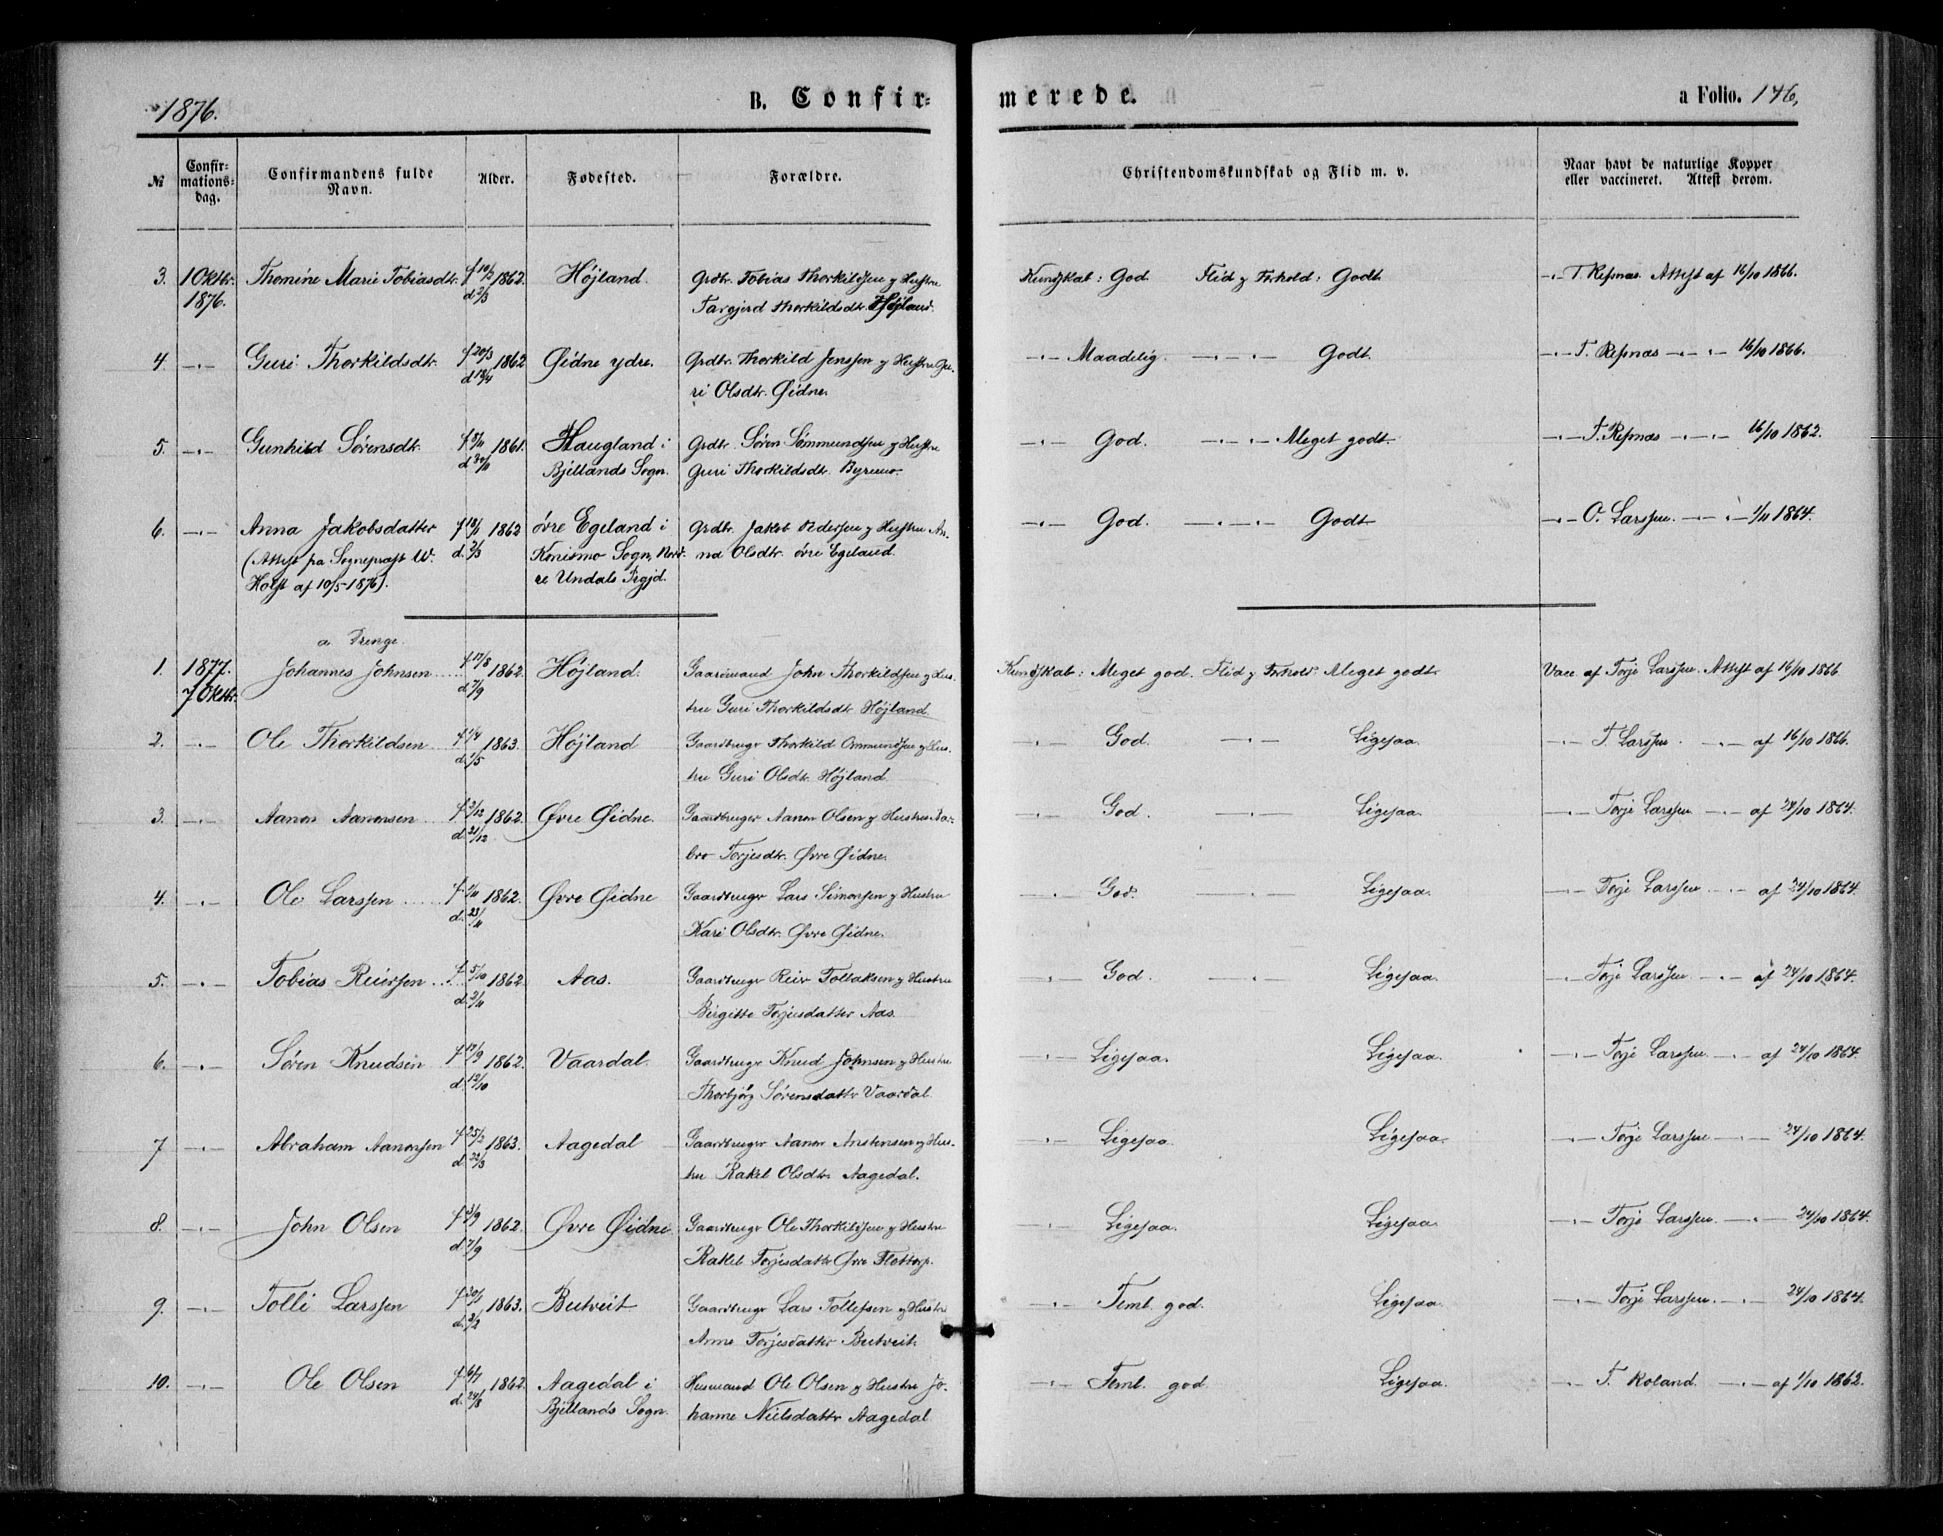 1876.
B. Confirmerede.
a Folio. 146,
№ Confirmationsdag. Confirmandens fulde Navn. Alder. Fødested. Forældre. Christendomskundskab og Flid m. v. Naar havt de naturlige Kopper eller vaccineret. Attest derom.
3. 1 Oktbr. 1876. Thomine Marie Tobiasdtr. f 10/2 1862. d 2/3 Højland. Grdbr. Tobias Thorkildsen og Hustru Targjerd Thorkildsdtr. Højland. Kundskab: God. Flid og Forhold: Godt. -"- T. Refsnæs. Attest af 16/10 1866.
4. -"- Guri Thorkildsdtr. f 20/3 1862 d 18/4 Øidne ydre. Grdbr. Thorkild Jenssen og Hustru Guri Olsdtr. Øidne. -"- Maadelig. -"- Godt. -"- T. Refsnæs -"- 16/10 1866.
5. -"- Gunhild Sørensdtr. f 8/11 1861. d 30/11 Haugland i Bjellands Sogn. Grdbr. Søren Sømmundsen og Hustru Guri Thorkildsdtr. Byremo. -"- God. -"- Meget godt. -"- T. Refsnæs -"- 16/10 1862.
6. -"- Anna Jakobsdatter (Attest fra Sogneprest W. Holst af 10/5-1876). f 18/1 1862 d. 2/3 øvre Egeland i Konsmo Sogn, Nordre Undals Prgjd. Grdbr. Jakob Pedersen og Hustru Anna Olsdtr. øvre Egeland. -"- God. -"- Godt -"- O. Larssen. -"- 1/11 1864.
a. Drenge.
1. 1877. 7 Oktbr. Johannes Johnsen f 17/8 1862. d 7/9 Højland. Gaardmand John Thorkildsen og Hustru Guri Thorkildsdtr. Højland. Kundskab: Meget god. Flid og Forhold: Meget godt. Vacc. af Torje Larssen. Attest af 16/10 1866
2. -"- Ole Thorkildsen f 1/4 1863. d. 1/5 Højland Gaardbruger Thorkild Ommundsen og Hustru Guri Olsdtr. Højland. -"- God. -"- Ligesaa. -"- T. Larssen. -"- af 16/10 1866.
3. -"- Aanon Aanonsen f 2/12 1862. d. 21/12 Øvre Øidne. Gaardbruger Aanon Olsen og Hustru Barbro Torjesdtr. Øvre Øidne. -"- God. -"- Ligesaa. -"- Torje Larssen -"- af 24/10 1864.
4. -"- Ole Larssen f. 1/11 1862. d. 23/11 Øvre Øidne Gaardbruger Lars Simonsen og Hustru Kari Olsdtr. Øvre Øidne. -"- God. -"- Ligesaa. Torje Larssen -"- af 24/10 1864.
5. -"- Tobias Reiersen f. 5/10 1862 d. 2/11 Aas. Gaardbruger Reier Tollaksen og Hustru Birgitte Torjesdatter Aas. -"- God. -"- Ligesaa. -"- Torje Larssen. -"- af 24/10 1864.
6. -"- Søren Knudsen f 17/9 1862. d. 12/10 Vaardal. Gaardbruger Knud Johnsen og Hustru Thorbjørg Sørensdatter Vaardal. -"- Ligesaa. Ligesaa. -"- Torje Larssen -"- af 24/10 1864.
7 -"- Abraham Aanonsen f 25/2 1863. d. 22/3 Aagedal Gaardbruger Aanon Anstensen og Hustru Rakel Olsdtr. Aagedal. -"- Ligesaa. Ligesaa. -"- Torje Larssen -"- 24/10 1864.
8. -"- John Olsen f 3/9 1862. d. 7/9 Øvre Øidne Gaardbruger Ole Thorkildsen og Hustru Rakel Torjesdatter Øvre Flottorp. -"- Ligesaa. Ligesaa. -"- Torje Larssen. -"- 24/10 1864.
9. -"- Tolli Larssen f 20/1 1863. d. 2/2 Butveit Gaardbruger Lars Tollefsen og Hustru Anne Torjesdatter Butveit. -"- Teml. god. Ligesaa. -"- Torje Larssen. -"- 24/10 1864.
10. -"- Ole Olsen f. 6/7 1862. d. 24/8 Aagedal i Bjellands Sogn. Husmand Ole Olsen og Hustru Johanne Nielsdatter Aagedal -"- Teml. god. Ligesaa. -"- T. Roland. -"- af 1/10 1862.